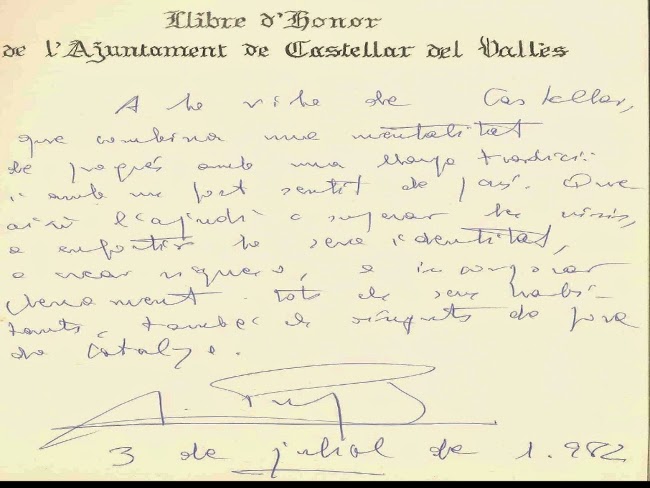 Llibre d'Honor
de l'Ajuntament de Castellar del Vallès
A la vila de Castellar,
que combina una mentalitat
de progrés amb una llarga tradició
i amb un fort sentit de país. Que
això l'ajudi a superar la crisis,
a enfortir la seva identitat,
a crear riquesa, i a incorporar
plenament tots els seus habi-
tants, també els vinguts de fora
de Catalunya.
3 de juliol de 1.982